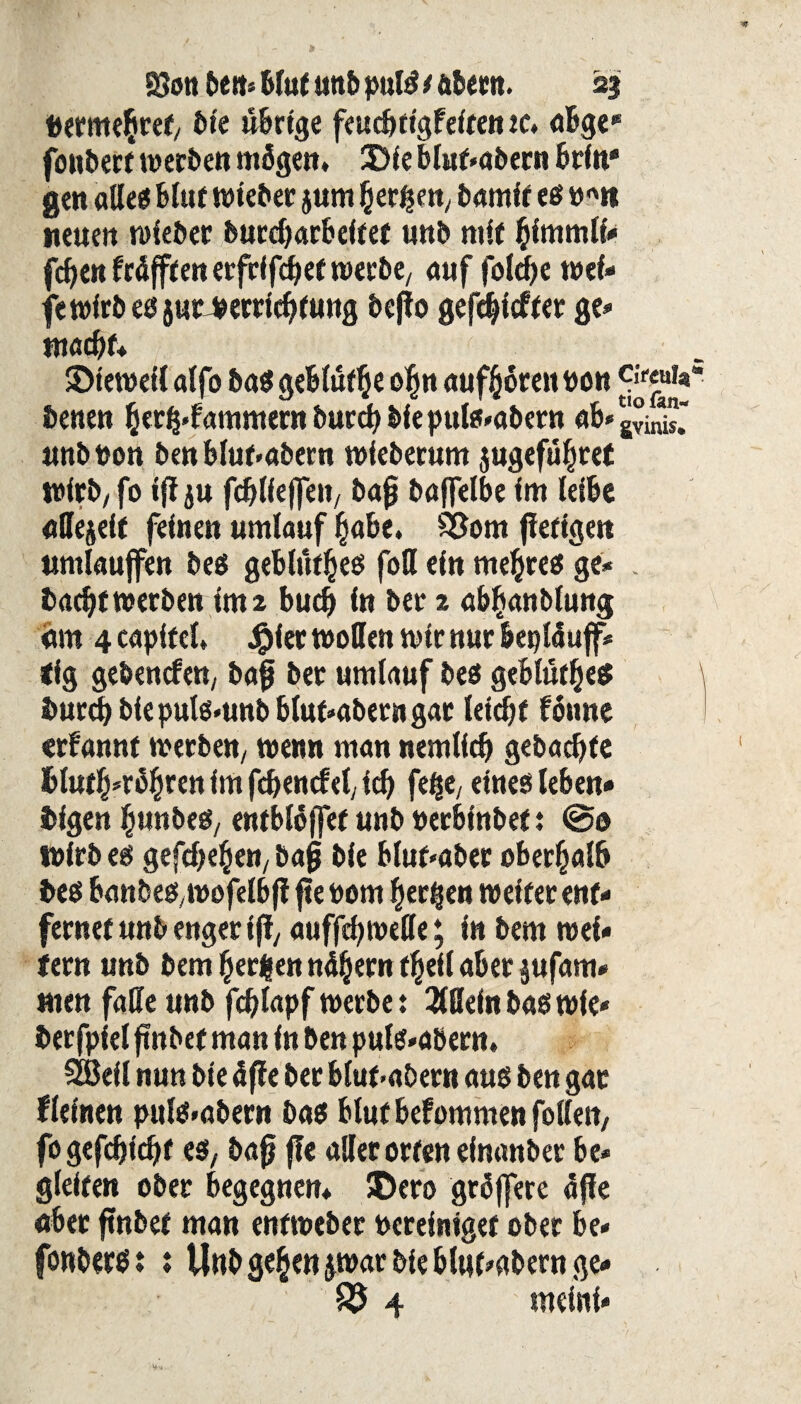 Von den- blut und puls-adern. 23
vermehret, die übrige feuchtigkeiten ⁊c. abge-
sondert werden mögen. Die blut-adern brin-
gen alles blut wieder zum hertzen, damit es von
neuen wieder durcharbeitet und mit himmli-
schen kräfften erfrischet werde, auf solche wei-
se wird es zur verrichtung desto geschickter ge-
macht.
Dieweil also das geblüthe ohn aufhören von
denen hertz-kammern durch die puls-adern ab-
und von den blut-adern wiederum zugeführet
wird, so ist zu schliessen, daß dasselbe im leibe
allezeit seinen umlauf habe. Vom stetigen
umlauffen des geblüthes soll ein mehres ge-
dacht werden im 2 buch in der 2 abhandlung
am 4 capitel. Hier wollen wir nur beyläuff-
tig gedencken, daß der umlauf des geblüthes
durch die puls-und blut-adern gar leicht könne
erkannt werden, wenn man nemlich gedachte
bluth-röhren im schenckel, ich setze, eines leben-
digen hundes, entblösset und verbindet: So
wird es geschehen, daß die blut-ader oberhalb
des bandes, woselbst sie vom hertzen weiter ent-
fernet und enger ist, auffschwelle; in dem wei-
tern und dem hertzen nähern theil aber zusam-
men falle und schlapf werde: Allein das wie-
derspiel findet man in den puls-adern.
Weil nun die äste der blut-adern aus den gar
kleinen puls-adern das blut bekommen sollen,
so geschicht es, daß sie aller orten einander be-
gleiten oder begegnen. Dero grössere äste
aber findet man entweder vereiniget oder be-
sonders: : Und gehen zwar die blut-adern ge-
B 4 meini-
Circula-
tio san-
gvinis.